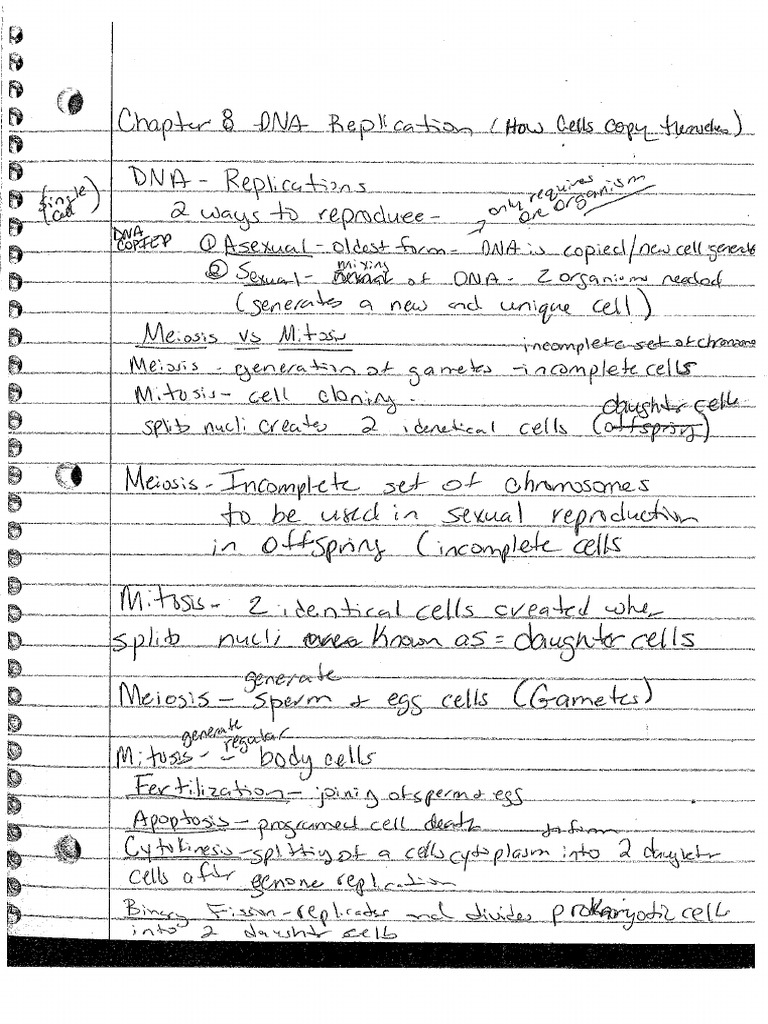 Chapter 8 DNA Replication (How Cells copy themselves)
DNA - Replications
(Single Cell)
2 ways to reproduce - → only requires one organism
DNA COPIED
① Asexual - oldest form - DNA is copied/new cell generate
② Sexual - mixing of DNA - 2 organisms needed
(generates a new and unique cell)
Meiosis vs Mitosis
incomplete set of chromosome
Meiosis - generation of gametes - incomplete cells
Mitosis - cell cloning.
split nucli creates 2 idenetical cells (offspring) daughter cells
Meiosis - Incomplete set of chromosomes
to be used in sexual reproduction
in offspring (incomplete cells
Mitosis - 2 identical cells created when
split nucli known as = daughter cells
Meiosis - generate sperm & egg cells (Gametes)
Mitosis - generate regular body cells
Fertilization - joining of sperm & egg
Apoptosis - programed cell death
Cytokinesis - splitting of a cells cytoplasm into 2 daughter to form
cells after genone replication
Binary Fission - replicates and divides prokaryotic cell
into 2 daughter cells